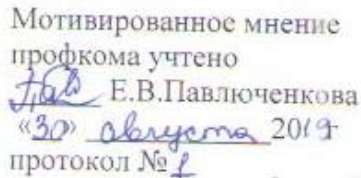 Мотивированное мнение
профкома учтено
Е.В.Павлюченкова
«30» августа 2019
протокол № 1